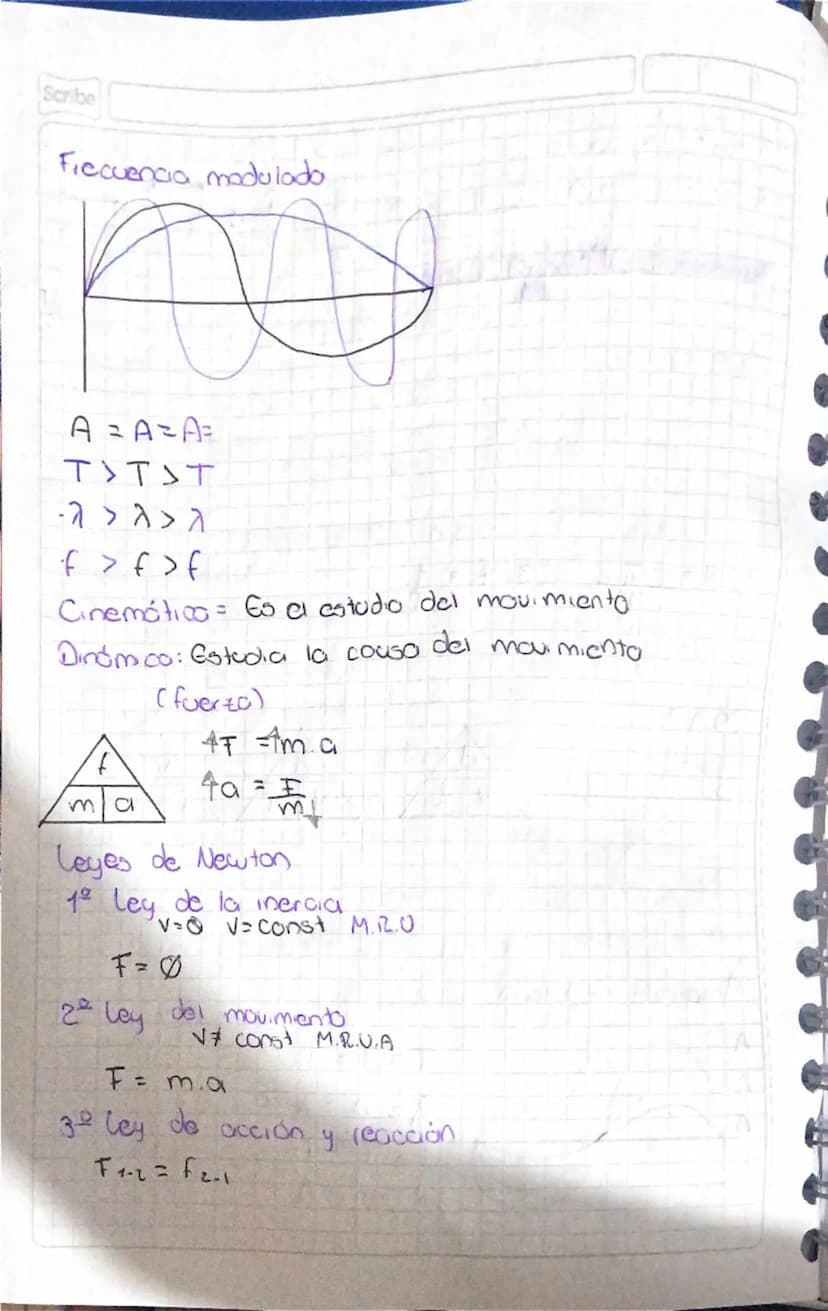 Scribe
Frecuencia modulado
A = A = A =
T > T > T
λ > λ > λ
f > f > f
Cinemática = Es el estudio del movimiento
Dinámica: Estudia la causa del movimiento
(fuerza)
↑F = ↑m.a
f
↑a = F/m↓
m | a
Leyes de Newton
1º Ley de la inercia
V=0 V=const M.R.U
F = Ø
2º Ley del movimiento
V≠ const M.R.U.A
F = m.a
3º Ley de acción y reacción
F 1-2 = f 2-1